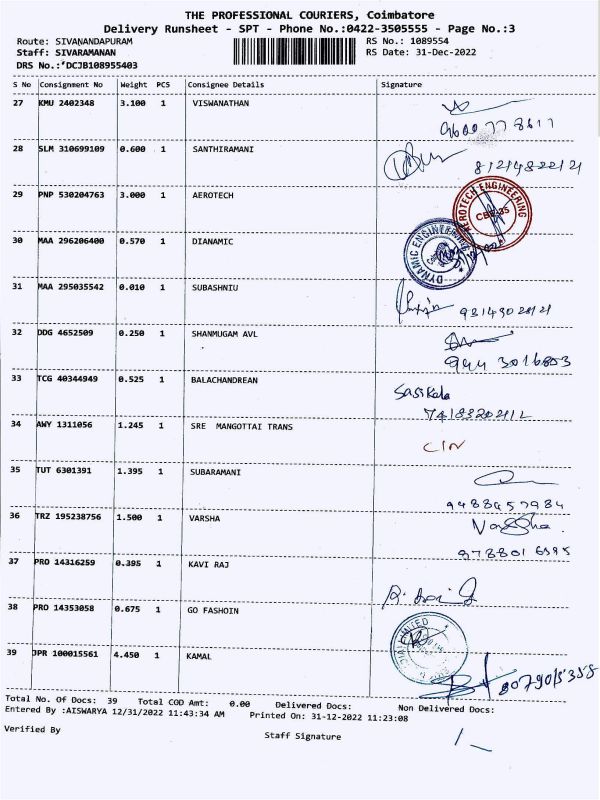 THE PROFESSIONAL COURIERS, Coimbatore
Delivery Runsheet - SPT - Phone No.:0422-3505555 - Page No.:3
Route: SIVANANDAPURAM RS No.: 1089554
Staff: SIVARAMANAN RS Date: 31-Dec-2022
DRS No.:*DCJB108955403
S No Consignment No Weight PCS Consignee Details Signature
27 KMU 2402348 3.100 1 VISWANATHAN
28 SLM 310699109 0.600 1 SANTHIRAMANI
29 PNP 530204763 3.000 1 AEROTECH
AEROTECH ENGINEERING
30 MAA 296206400 0.570 1 DIANAMIC
DYNAMIC ENGINEERING
31 MAA 295035542 0.010 1 SUBASHNIU
32 DDG 4652509 0.250 1 SHANMUGAM AVL
944 3016803
33 TCG 40344949 0.525 1 BALACHANDREAN
Sasikala
34 AWY 1311056 1.245 1 SRE MANGOTTAI TRANS
35 TUT 6301391 1.395 1 SUBARAMANI
36 TRZ 195238756 1.500 1 VARSHA
37 PRO 14316259 0.395 1 KAVI RAJ
38 PRO 14353058 0.675 1 GO FASHOIN
LIMITED
39 JPR 100015561 4.450 1 KAMAL
Total No. Of Docs: 39 Total COD Amt: 0.00 Delivered Docs: Non Delivered Docs:
Entered By :AISWARYA 12/31/2022 11:43:34 AM Printed On: 31-12-2022 11:23:08
Verified By Staff Signature